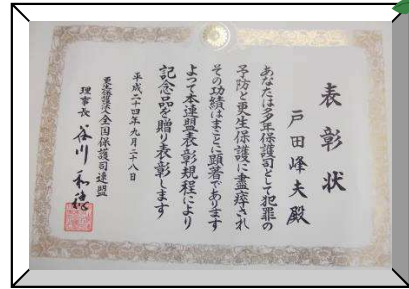 表彰状
戸田峰夫殿
あなたは多年保護司として犯罪の
予防と更生保護に盡瘁され
その功績はまことに顕著であります
よって本連盟表彰規程により
記念品を贈り表彰します
平成二十四年九月二十八日
更生保護法人全国保護司連盟
理事長 谷川和穂